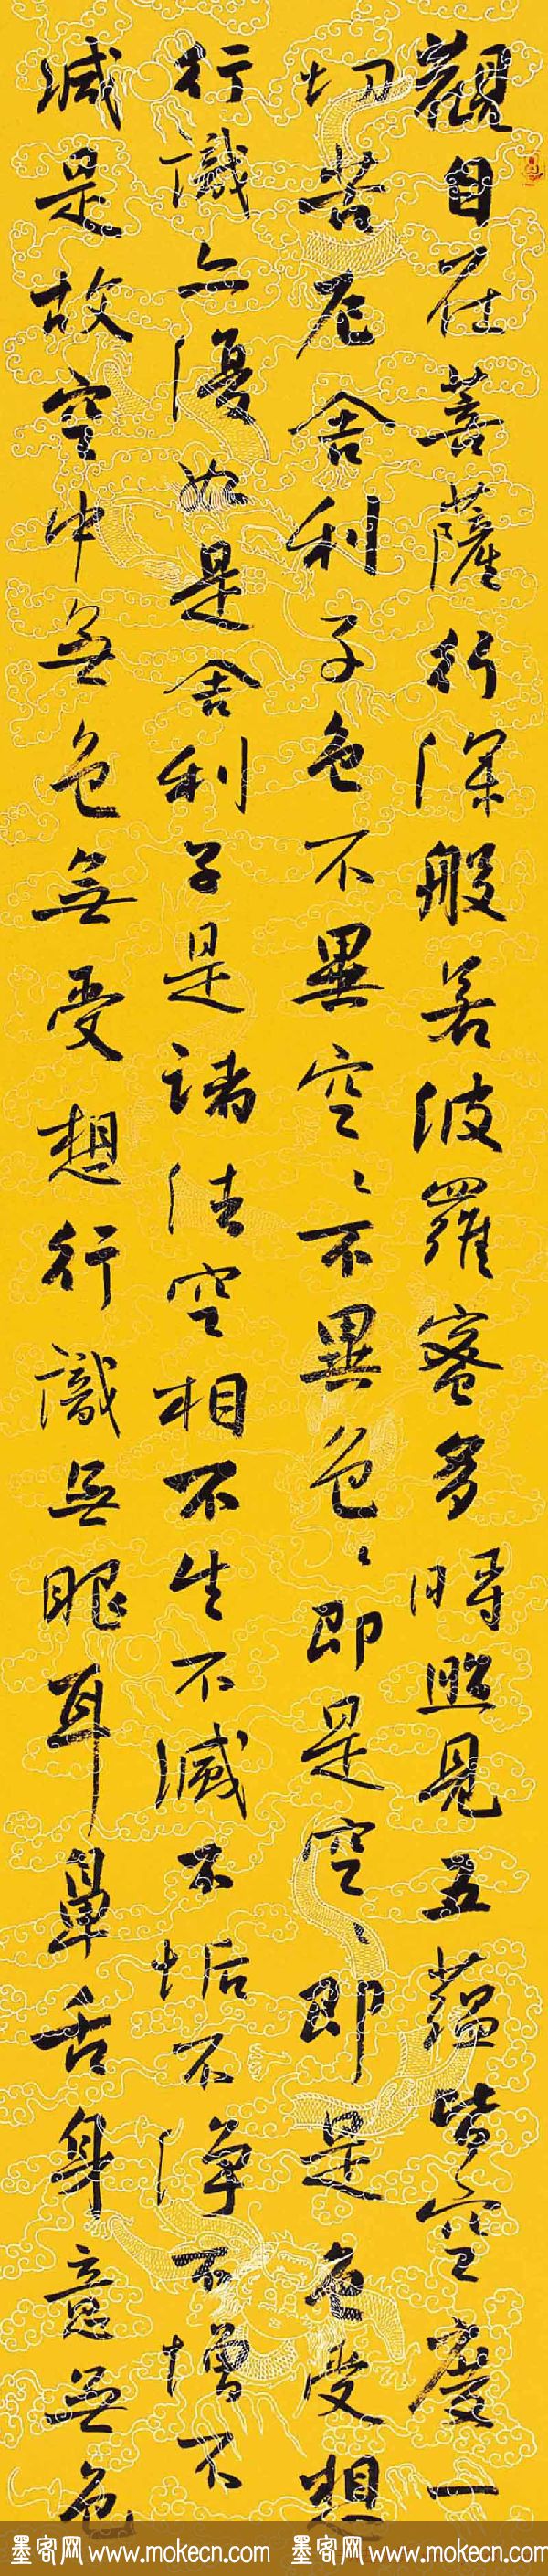 觀自在菩薩行深般若波羅蜜多時照見五蘊皆空度一
切苦厄舍利子色不異空、不異色、即是空、即是色受想
行識亦復如是舍利子是諸法空相不生不滅不垢不淨不增不
減是故空中無色無受想行識無眼耳鼻舌身意無色
墨客网 www.mokecn.com 墨客网 www.mokecn.com